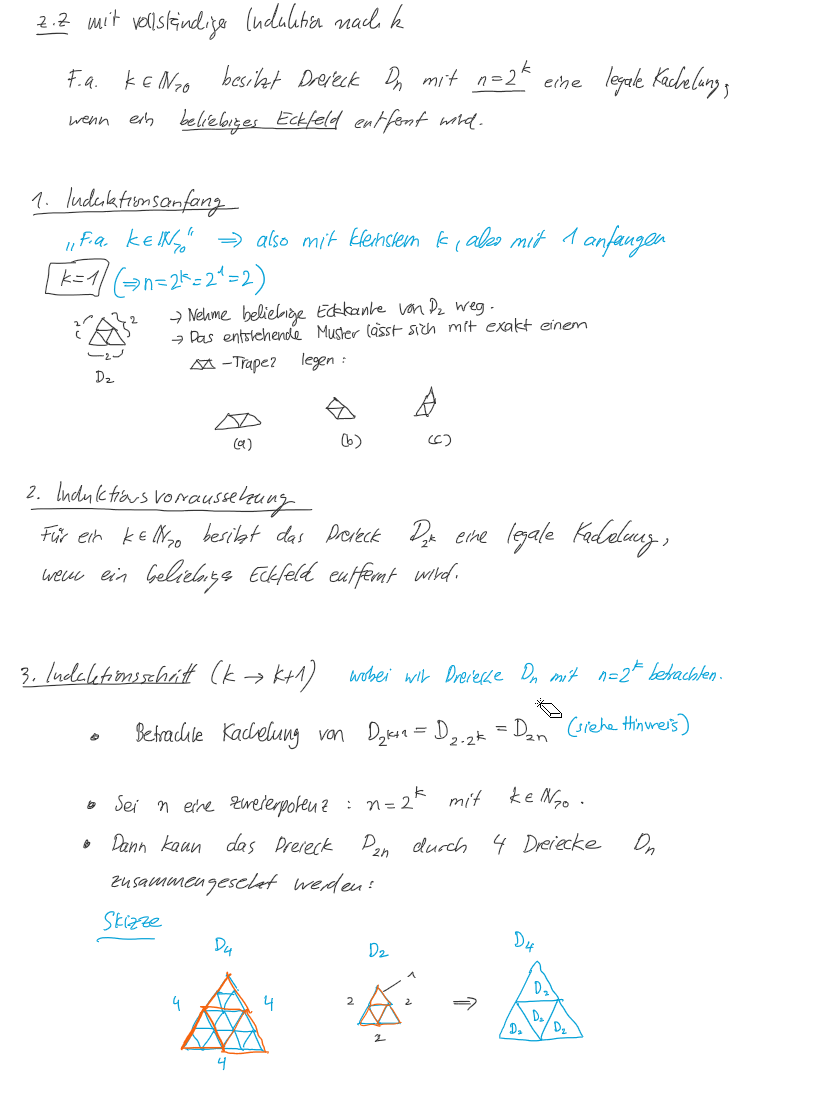 z.Z mit vollständiger Induktion nach k
F.a. k ∈ ℕ>0 besitzt Dreieck Dn mit n=2^k eine legale Kachelung,
wenn ein beliebiges Eckfeld entfernt wird.
1. Induktionsanfang
"F.a. k ∈ ℕ>0" ⇒ also mit kleinstem k, also mit 1 anfangen
k=1 (⇒ n=2^k=2^1=2)
→ Nehme beliebige Eckkante von D2 weg.
2 2 → Das entstehende Muster lässt sich mit exakt einem
2 -Trapez legen:
D2
(a) (b) (c)
2. Induktionsvorraussetzung
Für ein k ∈ ℕ>0 besitzt das Dreieck D2^k eine legale Kachelung,
wenn ein beliebiges Eckfeld entfernt wird.
3. Induktionsschritt (k → k+1) wobei wir Dreiecke Dn mit n=2^k betrachten.
• Betrachte Kachelung von D2^k+1 = D2·2^k = D2n (siehe Hinweis)
• Sei n eine Zweierpotenz: n=2^k mit k ∈ ℕ>0.
• Dann kann das Dreieck D2n durch 4 Dreiecke Dn
zusammengesetzt werden:
Skizze
D4 D2 D4
1
4 4 2 2 ⇒ D2
D2 D2 D2
4 2